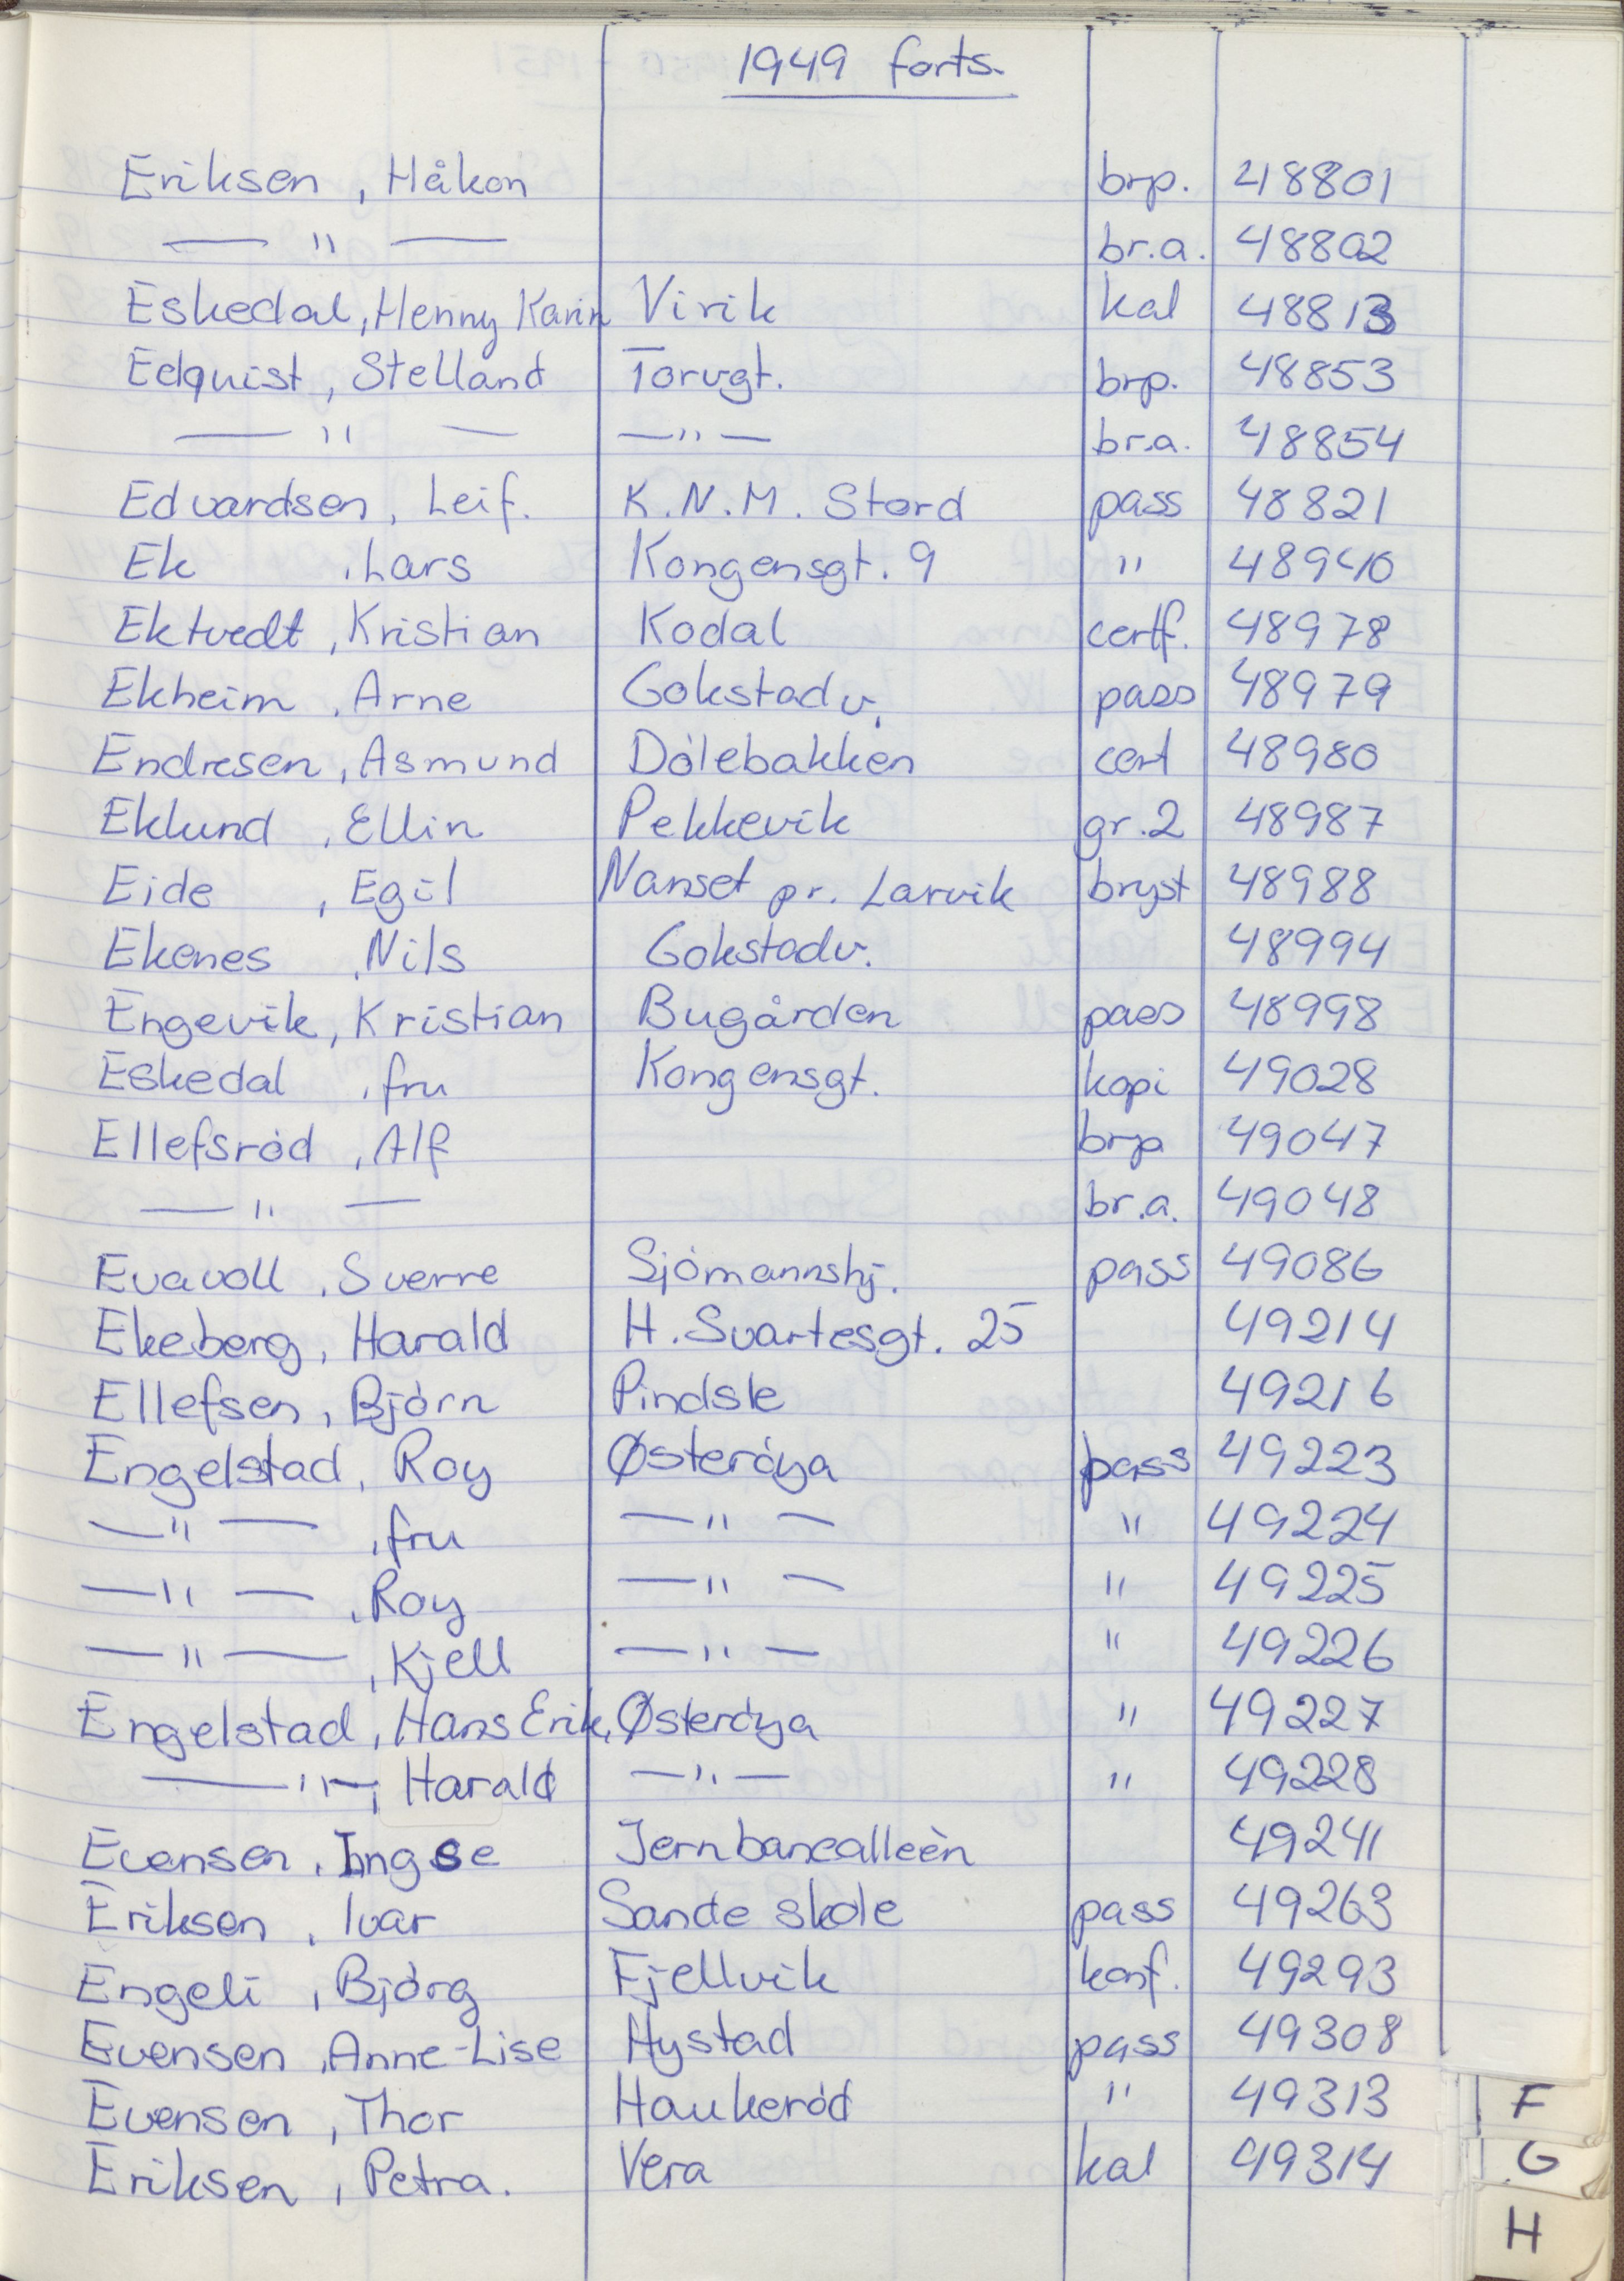 1949 forts.
Eriksen, Håkon brp. 48801
— " — br.a. 48802
Eskedal, Henny Karin Virik kal 48813
Edquist, Stelland Torvgt. brp. 48853
— " — — " — br.a. 48854
Edvardsen, Leif. K.N.M. Stord pass 48821
Ek, Lars Kongensgt. 9 " 48940
Ektvedt, Kristian Kodal certf. 48978
Ekheim, Arne Gokstadv. pass 48979
Endresen, Asmund Dølebakken cert 48980
Eklund, Ellin Pekkevik gr.2 48987
Eide, Egil Nanset pr. Larvik bryst 48988
Ekenes, Nils Gokstadv. 48994
Engevik, Kristian Bugården pass 48998
Eskedal, fru Kongensgt. kopi 49028
Ellefsrød, Alf brp 49047
— " — br.a. 49048
Evavoll, Sverre Sjømannshj. pass 49086
Ekeberg, Harald H. Svartesgt. 25 49214
Ellefsen, Bjørn Pindsle 49216
Engelstad, Roy Østerøya pass 49223
— " —, fru — " — " 49224
— " —, Roy — " — " 49225
— " —, Kjell — " — " 49226
Engelstad, Hans Erik, Østerøya " 49227
— " —, Harald — " — " 49228
Evensen, Jernbanealleèn 49241
Eriksen, Ivar Sande skole pass 49263
Engeli, Bjørg Fjellvik konf. 49293
Evensen, Anne-Lise Hystad pass 49308
Evensen, Thor Haukerød " 49313
Eriksen, Petra. Vera kal 49314
F
G
H